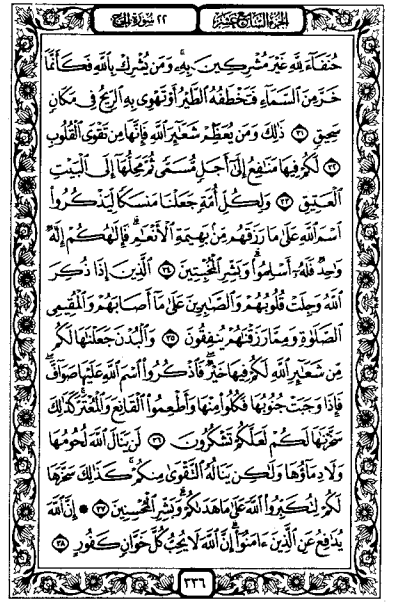 الجزء السابع عشر
٢٢ سورة الحج
حُنَفَآءَ لِلَّهِ غَيْرَ مُشْرِكِينَ بِهِۦ ۚ وَمَن يُشْرِكْ بِٱللَّهِ فَكَأَنَّمَا
خَرَّ مِنَ ٱلسَّمَآءِ فَتَخْطَفُهُ ٱلطَّيْرُ أَوْ تَهْوِى بِهِ ٱلرِّيحُ فِى مَكَانٍ
سَحِيقٍ ٣١ ذَٰلِكَ وَمَن يُعَظِّمْ شَعَٰٓئِرَ ٱللَّهِ فَإِنَّهَا مِن تَقْوَى ٱلْقُلُوبِ
٣٢ لَكُمْ فِيهَا مَنَٰفِعُ إِلَىٰٓ أَجَلٍ مُّسَمًّى ثُمَّ مَحِلُّهَآ إِلَى ٱلْبَيْتِ
ٱلْعَتِيقِ ٣٣ وَلِكُلِّ أُمَّةٍ جَعَلْنَا مَنسَكًا لِّيَذْكُرُوا۟
ٱسْمَ ٱللَّهِ عَلَىٰ مَا رَزَقَهُم مِّنۢ بَهِيمَةِ ٱلْأَنْعَٰمِ ۗ فَإِلَٰهُكُمْ إِلَٰهٌ
وَٰحِدٌ فَلَهُۥٓ أَسْلِمُوا۟ ۗ وَبَشِّرِ ٱلْمُخْبِتِينَ ٣٤ ٱلَّذِينَ إِذَا ذُكِرَ
ٱللَّهُ وَجِلَتْ قُلُوبُهُمْ وَٱلصَّٰبِرِينَ عَلَىٰ مَآ أَصَابَهُمْ وَٱلْمُقِيمِى
ٱلصَّلَوٰةِ وَمِمَّا رَزَقْنَٰهُمْ يُنفِقُونَ ٣٥ وَٱلْبُدْنَ جَعَلْنَٰهَا لَكُم
مِّن شَعَٰٓئِرِ ٱللَّهِ لَكُمْ فِيهَا خَيْرٌ ۖ فَٱذْكُرُوا۟ ٱسْمَ ٱللَّهِ عَلَيْهَا صَوَآفَّ ۖ
فَإِذَا وَجَبَتْ جُنُوبُهَا فَكُلُوا۟ مِنْهَا وَأَطْعِمُوا۟ ٱلْقَانِعَ وَٱلْمُعْتَرَّ ۚ كَذَٰلِكَ
سَخَّرْنَٰهَا لَكُمْ لَعَلَّكُمْ تَشْكُرُونَ ٣٦ لَن يَنَالَ ٱللَّهَ لُحُومُهَا
وَلَا دِمَآؤُهَا وَلَٰكِن يَنَالُهُ ٱلتَّقْوَىٰ مِنكُمْ ۚ كَذَٰلِكَ سَخَّرَهَا
لَكُمْ لِتُكَبِّرُوا۟ ٱللَّهَ عَلَىٰ مَا هَدَىٰكُمْ ۗ وَبَشِّرِ ٱلْمُحْسِنِينَ ٣٧ ۞ إِنَّ ٱللَّهَ
يُدَٰفِعُ عَنِ ٱلَّذِينَ ءَامَنُوٓا۟ ۗ إِنَّ ٱللَّهَ لَا يُحِبُّ كُلَّ خَوَّانٍ كَفُورٍ ٣٨
٣٣٦